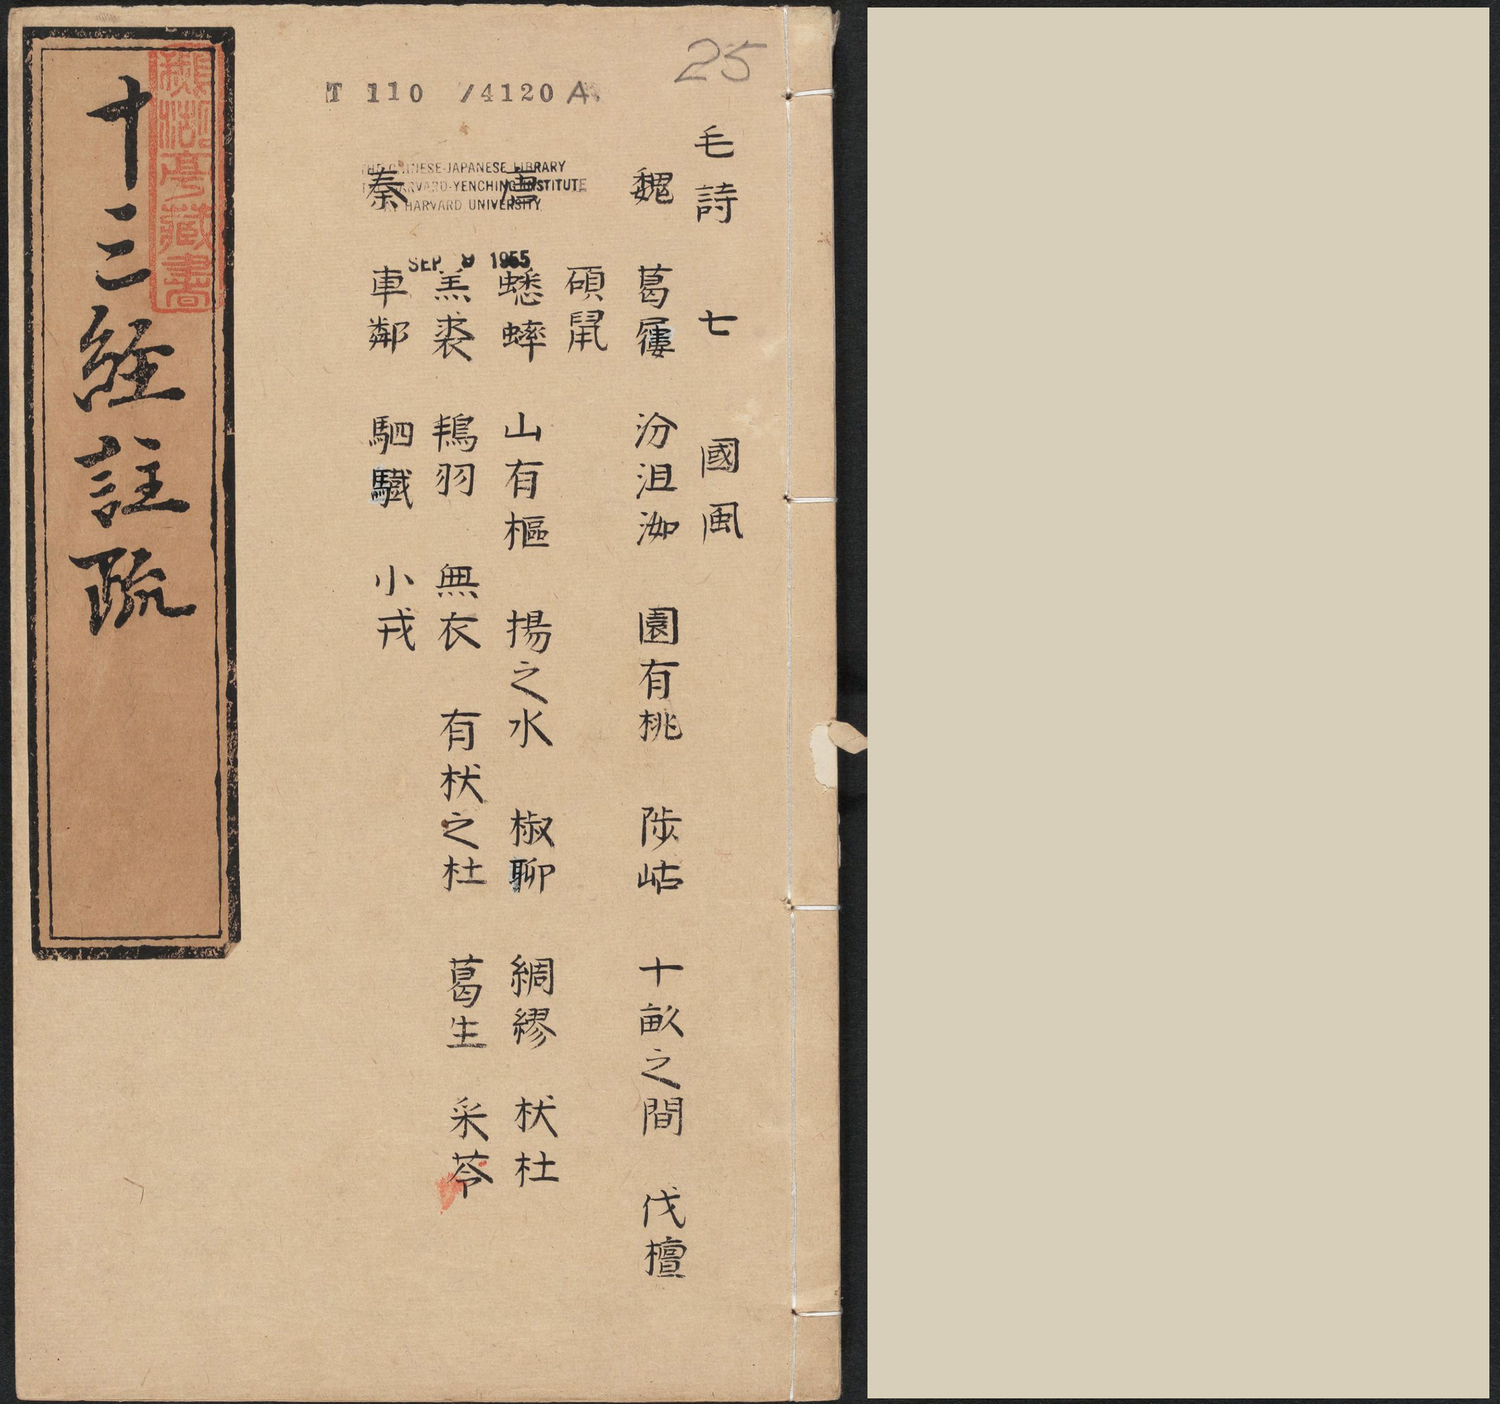 25
T 110 /4120 A
THE CHINESE-JAPANESE LIBRARY
HARVARD-YENCHING INSTITUTE
HARVARD UNIVERSITY
SEP 9 1955
毛詩 七 國風
魏 葛屨 汾沮洳 園有桃 陟岵 十畝之間 伐檀
碩鼠
唐 蟋蟀 山有樞 揚之水 椒聊 綢繆 杕杜
羔裘 鴇羽 無衣 有杕之杜 葛生 采苓
秦 車鄰 駟驖 小戎
十三經註疏
湖亭藏書